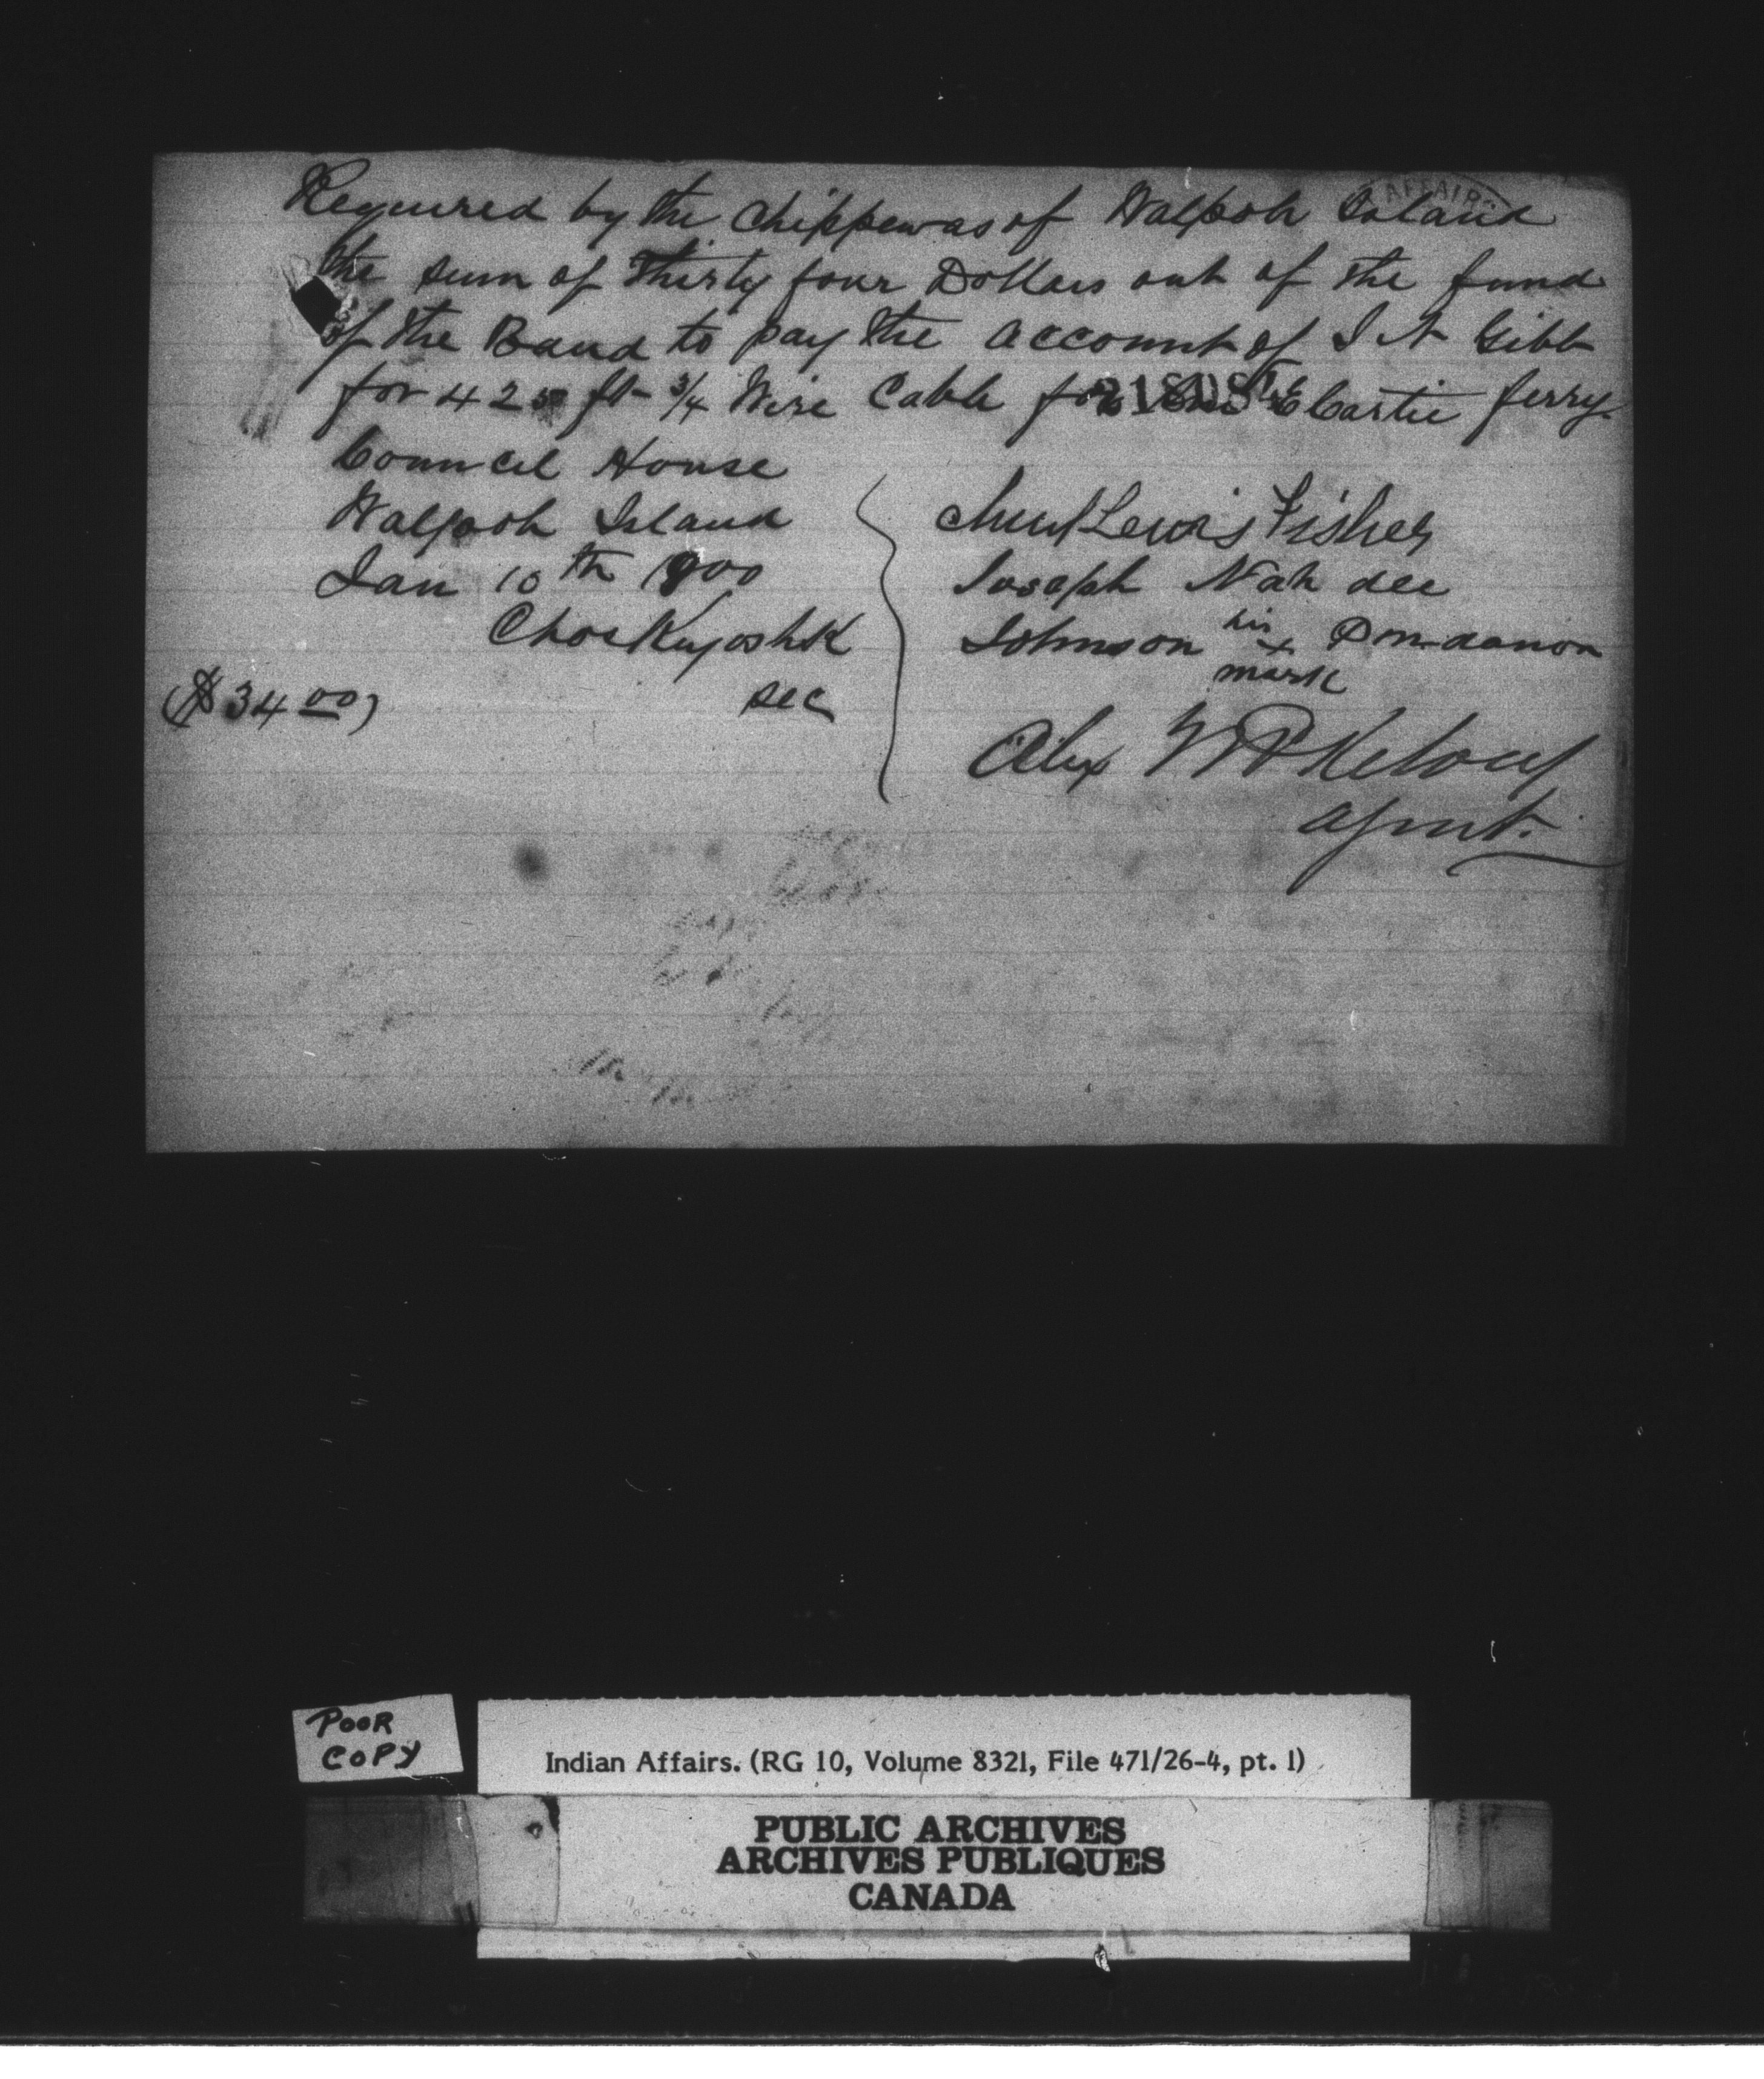 AFFAIRS
Required by the Chippewas of Walpole Island
the sum of Thirty four Dollars out of the fund
of the Band to pay the account of J A Gibb
for 425 ft 3/4 Wire Cable for the Cartie ferry
Council House
Walpole Island
Jan 10th 1900
Chas Kiyoshk
Sec
($ 34 00)
Chief Lewis Fisher
Joseph Nah dee
Johnson his x mark
Alex
Agent.
POOR
COPY
Indian Affairs. (RG 10, Volume 8321, File 471/26-4, pt. 1)
PUBLIC ARCHIVES
ARCHIVES PUBLIQUES
CANADA